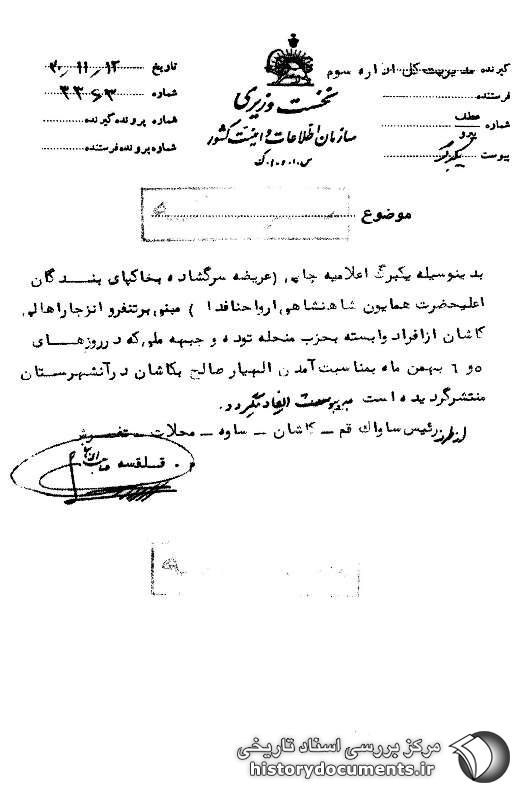 گیرنده مدیریت کل اداره سوم
فرستنده
شماره عطف
پیرو
پیوست یکبرگ
نخست وزیری
سازمان اطلاعات و امنیت کشور
س.ا.و.ا.ک
تاریخ ۴۰/۱۱/۱۲
شماره ۳۳۶۳
شماره پرونده گیرنده
شماره پرونده فرستنده
موضوع
بدینوسیله یکبرگ اعلامیه چاپی (عریضه سرگشاده بخاکپای بندگان
اعلیحضرت همایون شاهنشاهی ارواحنافدا) مبنی برتنفروانزجاراهالی
کاشان ازافراد وابسته بحزب منحله توده و جبهه ملی که درروزهای
۵ و ۶ بهمن ماه بمناسبت آمدن الهیار صالح بکاشان درآنشهرستان
منتشرگردیده است به پیوست ایفاد میگردد.
ازطرف رئیس ساواک قم - کاشان - ساوه - محلات - تفرش
م. قلقسه
مرکز بررسی اسناد تاریخی
historydocuments.ir